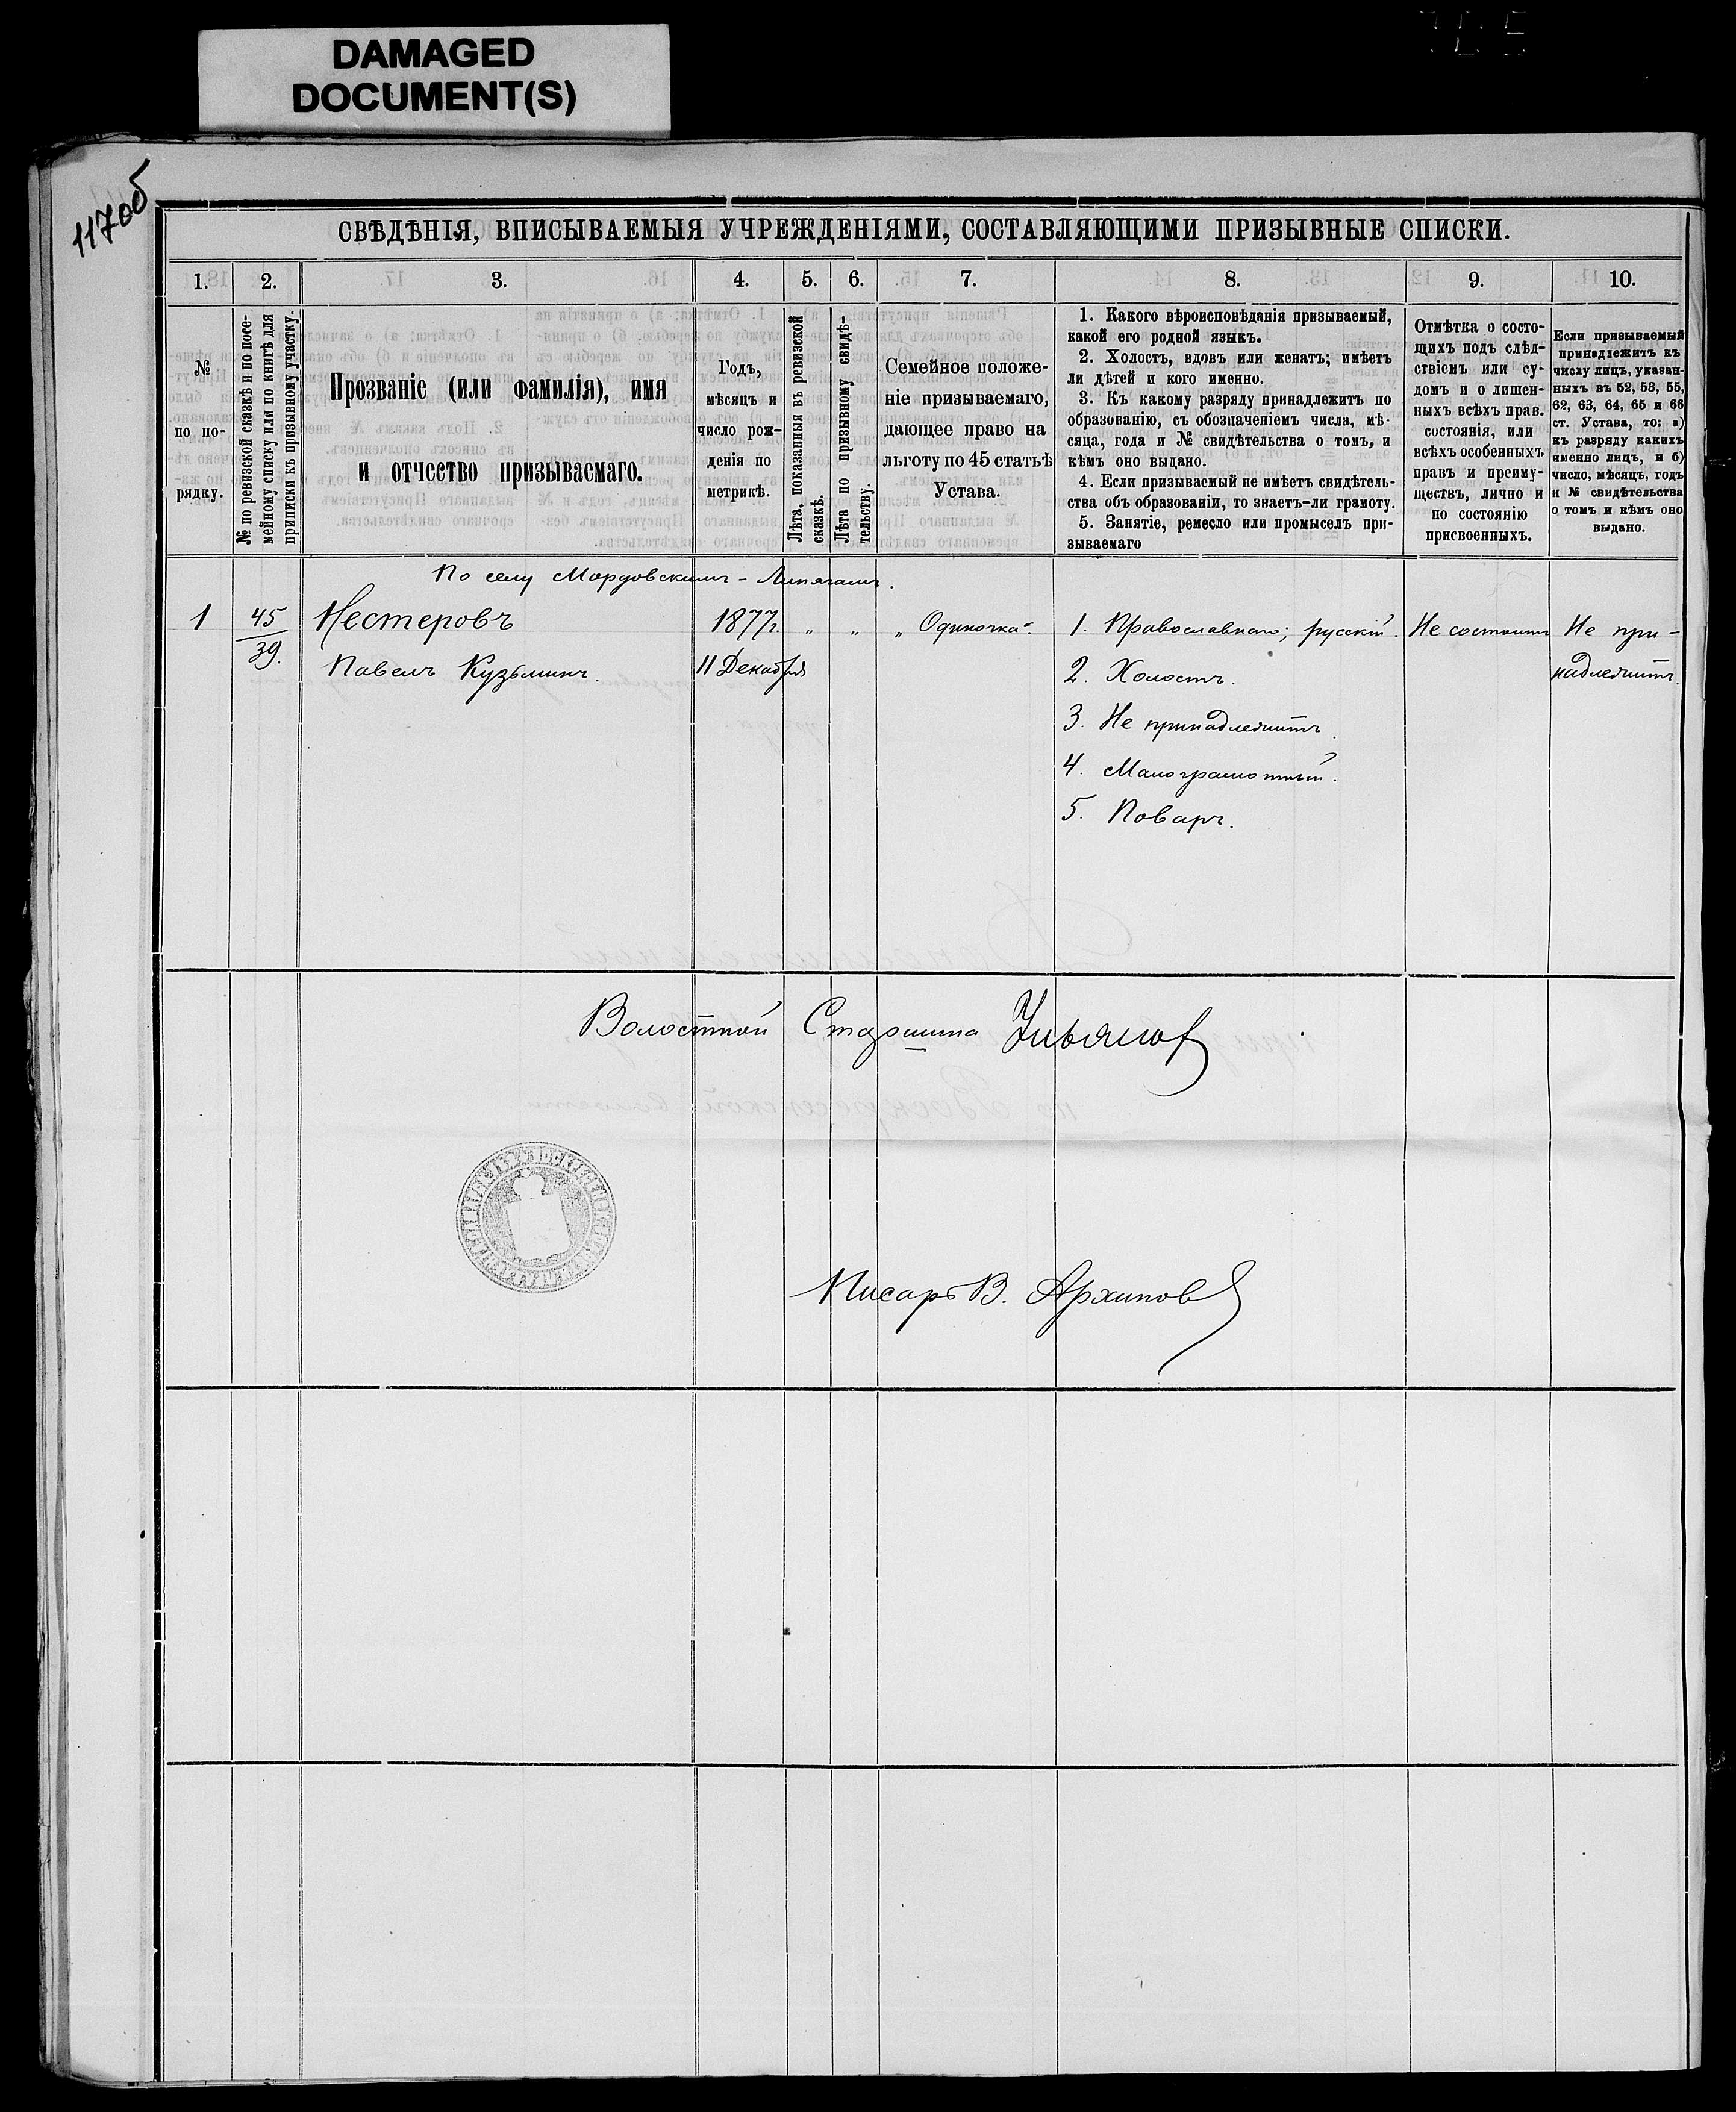 DAMAGED
DOCUMENT(S)
117об
СВѢДѢНІЯ, ВПИСЫВАЕМЫЯ УЧРЕЖДЕНІЯМИ, СОСТАВЛЯЮЩИМИ ПРИЗЫВНЫЕ СПИСКИ.
1. 2. 3. 4. 5. 6. 7. 8. 9. 10.
№
по по-
рядку.
№ по ревизской сказкѣ и по посе-
мейному списку или по книгѣ для
приписки къ призывному участку.
Прозваніе (или фамилія), имя
и отчество призываемаго.
Годъ,
мѣсяцъ и
число рож-
денія по
метрикѣ.
Лѣта, показанныя въ ревизской
сказкѣ.
Лѣта по призывному свидѣ-
тельству.
Семейное положе-
ніе призываемаго,
дающее право на
льготу по 45 статьѣ
Устава.
1. Какого вѣроисповѣданія призываемый,
какой его родной языкъ.
2. Холостъ, вдовъ или женатъ; имѣетъ
ли дѣтей и кого именно.
3. Къ какому разряду принадлежитъ по
образованію, съ обозначеніемъ числа, мѣ-
сяца, года и № свидѣтельства о томъ, и
кѣмъ оно выдано.
4. Если призываемый не имѣетъ свидѣтель-
ства объ образованіи, то знаетъ-ли грамоту.
5. Занятіе, ремесло или промыселъ при-
зываемаго
Отмѣтка о состо-
щихъ подъ слѣд-
ствіемъ или су-
домъ и о лишен-
ныхъ всѣхъ прав.
состоянія, или
всѣхъ особенныхъ
правъ и преиму-
ществъ, лично и
по состоянію
присвоенныхъ.
Если призываемый
принадлежитъ къ
числу лицъ, указан-
ныхъ въ 52, 53, 55,
62, 63, 64, 65 и 66
ст. Устава, то: а)
къ разряду какихъ
именно лицъ, и б)
число, мѣсяцъ, годъ
и № свидѣтельства
о томъ и кѣмъ оно
выдано.
По селу Мордовскимъ-Липягамъ.
1 45/39. Нестеровъ 1877г. " " " Одиночка". 1. Православнаго; русскій. Не состоитъ Не при-
Павелъ Кузьминъ. 11 Декабря 2. Холостъ. надлежитъ.
3. Не принадлежитъ.
4. Малограмотный.
5. Поваръ.
Волостной Старшина
Писарь В. Архипов